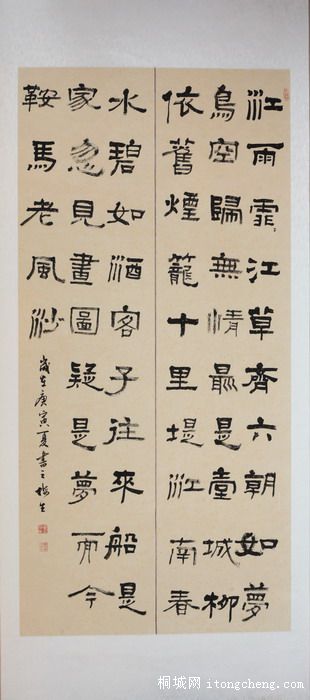 江雨霏〻江草齊六朝如夢
鳥空歸無情最是臺城柳
依舊煙籠十里堤江南春
水碧如酒客子往來船是
家忽見畫圖疑是夢而今
鞍馬老風沙
歲在庚寅夏書之
桐城网 itongcheng.com